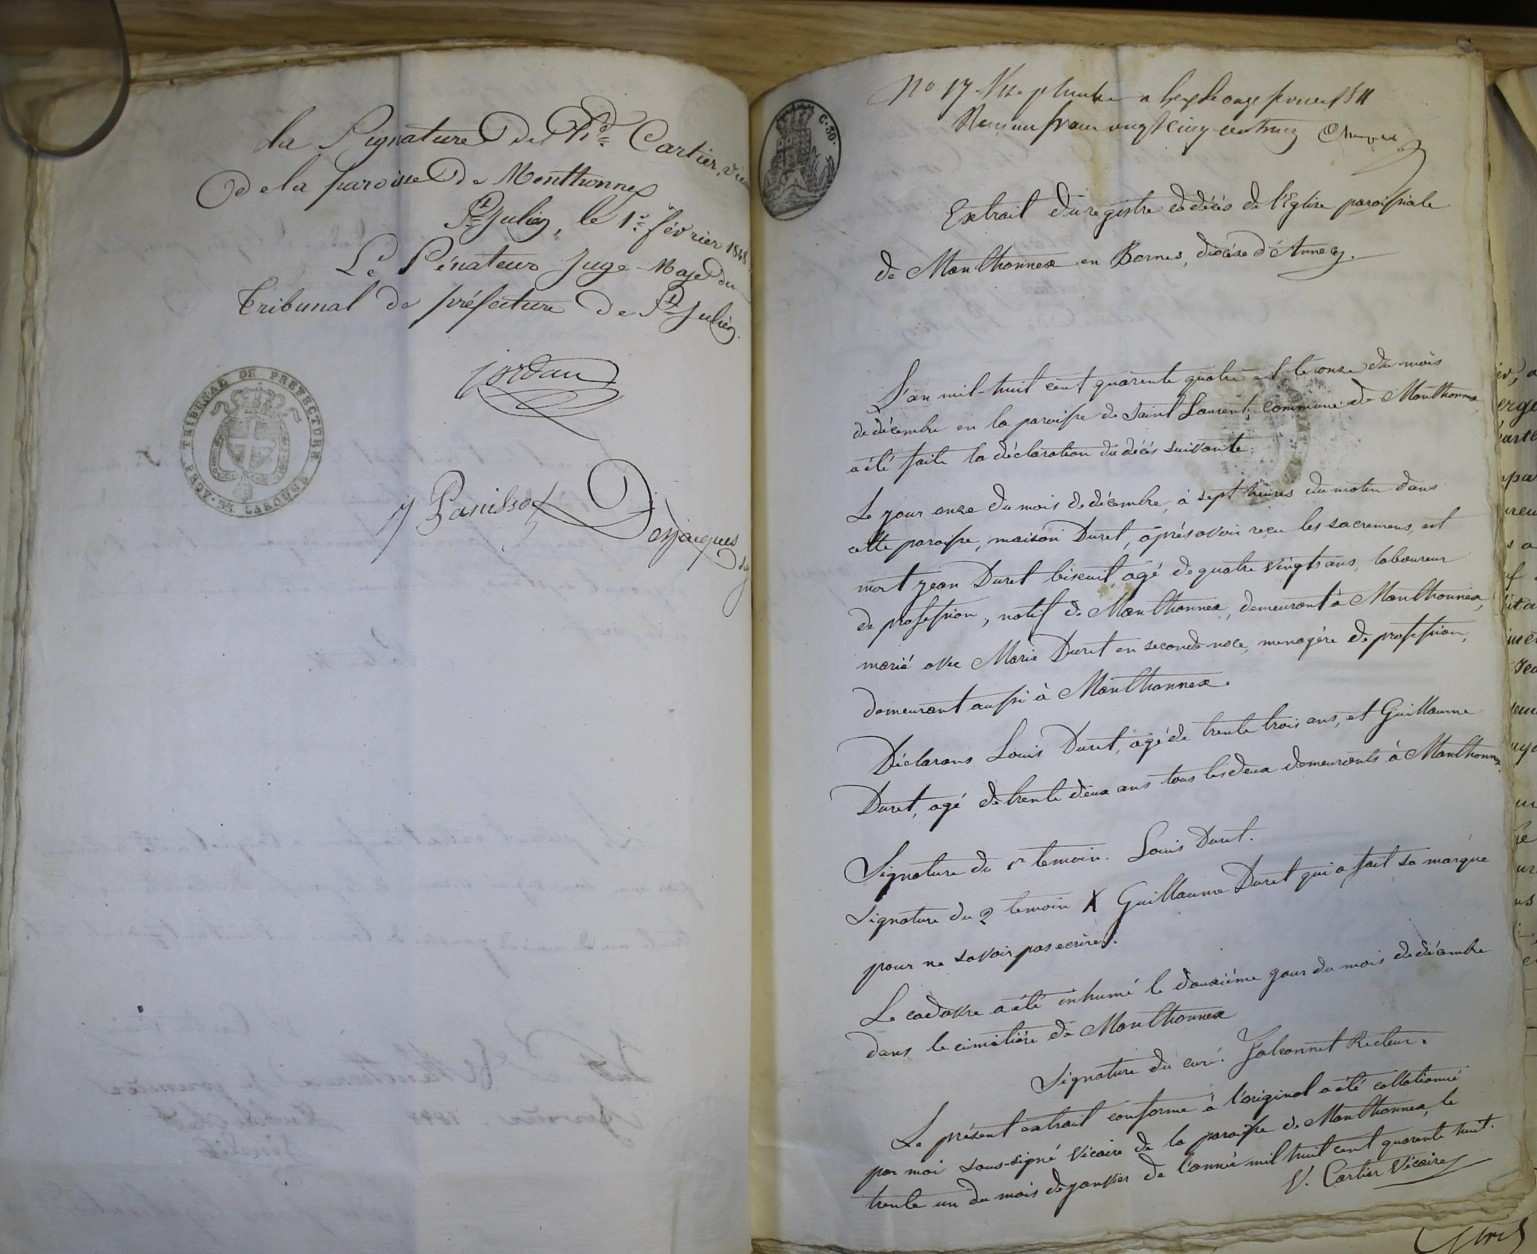 la Signature de Rd Cartier, vic
de la paroisse de Menthonnex
St Julien, le 1er février 1848
Le Sénateur Juge-Maje du
Tribunal de préfecture de St Julien
Jordan
AGEV TRIBUNAL DE PREFECTURE
Panisset Desjaques
C. 30.
No 17
Reçu un franc vingt cinq centimes
Extrait du registre de décès de l'Eglise paroissiale
de Menthonnex en Bornes, diocèse d'Annecy.
L'an mil-huit cent quarante quatre et le onze du mois
de décembre en la paroisse de Saint Laurent, commune de Menthonnex
a été faite la déclaration du décès suivante.
Le jour onze du mois de décembre, à sept heures du matin dans
cette paroisse, maison Duret, après avoir reçu les sacremens, est
mort Jean Duret biscuit, agé de quatre vingts ans, laboureur
de profession, natif de Menthonnex, demeurant à Menthonnex,
marié avec Marie Duret en seconde noce, menagère de profession,
demeurant aussi à Menthonnex.
Déclarans Louis Duret, agé de trente trois ans, et Guillaume
Duret, agé de trente deux ans tous les deux demeurants à Menthonnex
Signature du 1r temoin. Louis Duret.
Signature du 2 temoin X Guillaume Duret qui a fait sa marque
pour ne savoir pas ecrire.
Le cadavre a été inhumé le douzième jour du mois de décembre
dans le cimetière de Menthonnex
Signature du curé. Falconnet Recteur.
Le présent extrait conforme à l'original a été collationné
par moi sous-signé Vicaire de la paroisse de Menthonnex, le
trente un du mois de janvier de l'année mil huit cent quarante huit.
V. Cartier Vicaire